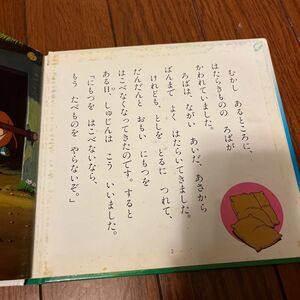 むかし あるところに、
はたらきものの ろばが
かわれていました。
ろばは、ながい あいだ、あさから
ばんまで よく はたらいてきました。
けれども、としを とるに つれて、
だんだんと おもい にもつを
はこべなくなってきたのです。すると
ある日、しゅじんは こう いいました。
「にもつを はこべないなら、
もう たべものを やらないぞ。」